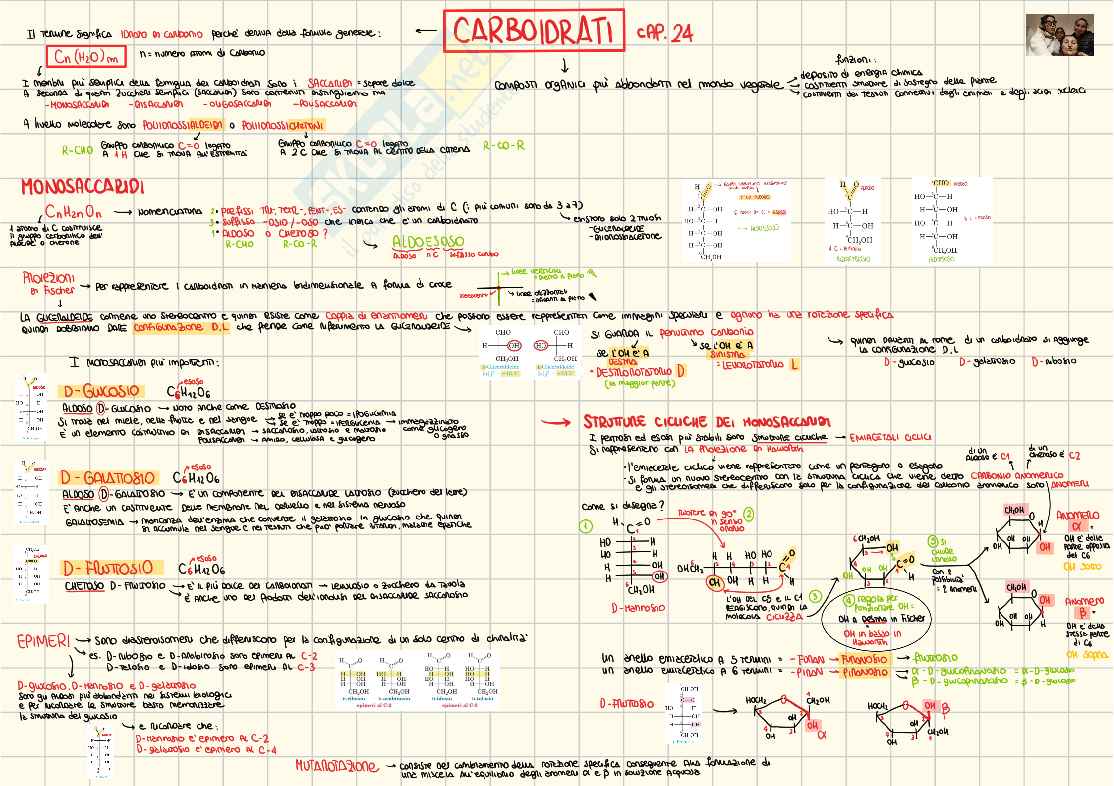 CARBOIDRATI CAP. 24
Il termine significa IDRATO DI CARBONIO perché deriva dalla formula generale:
Cn(H2O)m n = numero atomi di carbonio
I membri più semplici della famiglia dei carboidrati sono i SACCARIDI = sapore dolce
A seconda di quanti zuccheri semplici (saccaridi) sono contenuti distinguiamo tra
-MONOSACCARIDI -DISACCARIDI -OLIGOSACCARIDI -POLISACCARIDI
composti organici più abbondanti nel mondo vegetale
funzioni:
deposito di energia chimica
costituenti strutture di sostegno delle piante
costituenti dei tessuti connettivi degli animali e degli acidi nucleici
A livello molecolare sono POLIIDROSSIALDEIDI o POLIIDROSSICHETONI
R-CHO GRUPPO CARBONILICO C=O LEGATO
A 1 H CHE SI TROVA ALL'ESTREMITÀ
GRUPPO CARBONILICO C=O LEGATO
A 2 C CHE SI TROVA AL CENTRO DELLA CATENA R-CO-R
MONOSACCARIDI
CnH2nOn
1 atomo di C costituisce
il gruppo carbonilico dell'
aldeide o chetone
NOMENCLATURA
2• PREFISSI TRI-, TETR-, PENT-, ES- contando gli atomi di C (i più comuni sono da 3 a 7)
3• SUFFISSO -OSIO / -OSO che indica che è un carboidrato
1• ALDOSO O CHETOSO ?
R-CHO R-CO-R
ALDOESOSO
esistono solo 2 triosi
-GLICERALDEIDE
-DIIDROSSIACETONE
PROIEZIONI
DI Fischer
per rappresentare i carboidrati in maniera bidimensionale a forma di croce
LA GLICERALDEIDE contiene uno stereocentro e quindi esiste come COPPIA DI ENANTIOMERI che possono essere rappresentati come immagini speculari e ognuno ha una rotazione specifica
quindi dobbiamo DARE CONFIGURAZIONE D,L che prende come riferimento la GLICERALDEIDE
SI GUARDA IL PENULTIMO CARBONIO
se l'OH è A
DESTRA
• DESTROROTATORIO D
(la maggior parte)
se l'OH è A
SINISTRA
• LEVOROTATORIO L
quindi davanti al nome di un carboidrato si aggiunge
la configurazione D,L
D-glucosio D-galattosio D-ribosio
I MONOSACCARIDI PIÙ IMPORTANTI:
D-GLUCOSIO C6H12O6 esoso
ALDOSO D-GLUCOSIO → NOTO anche come DESTROSIO
Si trova nel miele, nella frutta e nel sangue
se è troppo poco = IPOGLICEMIA
se è troppo = IPERGLICEMIA → immagazzinato
come glicogeno
o grasso
È un elemento costitutivo di DISACCARIDI → SACCAROSIO, lattosio e maltosio
POLISACCARIDI → AMIDO, cellulosa e glicogeno
D-GALATTOSIO C6H12O6 esoso
ALDOSO D-GALATTOSIO → È UN COMPONENTE DEL DISACCARIDE LATTOSIO (zucchero del latte)
È anche un costituente delle membrane del cervello e nel sistema nervoso
GALATTOSEMIA → mancanza dell'enzima che converte il galattosio in glucosio che quindi
si accumula nel sangue e nei tessuti che può portare
D-FRUTTOSIO C6H12O6 esoso
CHETOSO D-FRUTTOSIO → È IL PIÙ DOLCE DEI CARBOIDRATI → LEVULOSIO
È anche uno dei prodotti dell'idrolisi del disaccaride saccarosio
EPIMERI → Sono diastereoisomeri che differiscono per la configurazione di un solo centro di chiralità
es. D-RIBOSIO e D-ARABINOSIO sono epimeri al C-2
D-TALOSIO e D-IDOSIO sono epimeri al C-3
D-glucosio, D-mannosio e D-galattosio
sono gli aldosi più abbondanti nei sistemi biologici
e per ricordare le strutture basta memorizzare
la struttura del glucosio
e ricordare che:
D-mannosio è epimero al C-2
D-galattosio è epimero al C-4
STRUTTURE CICLICHE DEI MONOSACCARIDI
I pentosi ed esosi più stabili sono STRUTTURE CICLICHE → EMIACETALI CICLICI
Si rappresentano con LA PROIEZIONE DI Haworth
-l'emiacetale ciclico viene rappresentato come un pentagono o esagono
-si forma un nuovo stereocentro con la struttura ciclica che viene detto CARBONIO ANOMERICO
e gli stereoisomeri che differiscono solo per la configurazione del carbonio anomerico sono ANOMERI
di un
aldoso è C1
di un
chetoso è C2
Come si disegna?
1
RUOTARE DI 90°
in senso
orario
2
D-MANNOSIO
L'OH DEL C5 E IL C1
REAGISCONO, QUINDI LA
MOLECOLA CICLIZZA
3
4 regola per
posizionare OH:
OH a DESTRA in Fischer
=
OH in basso in
Haworth
5 si
chiude
l'anello
con 2
possibilità
= 2 anomeri
ANOMERO
α
OH è dalla
parte opposta
del C6
OH sotto
ANOMERO
β
OH è dalla
stessa parte
di C6
OH sopra
Un anello emiacetalico a 5 termini = -FURAN → FURANOSIO → FRUTTOSIO
Un anello emiacetalico a 6 termini = -PIRAN → PIRANOSIO → α-D-glucopiranosio = α-D-glucosio
β-D-glucopiranosio = β-D-glucosio
D-FRUTTOSIO
α
β
MUTAROTAZIONE → consiste nel cambiamento della rotazione specifica conseguente alla formazione di
una miscela all'equilibrio degli anomeri α e β in soluzione acquosa